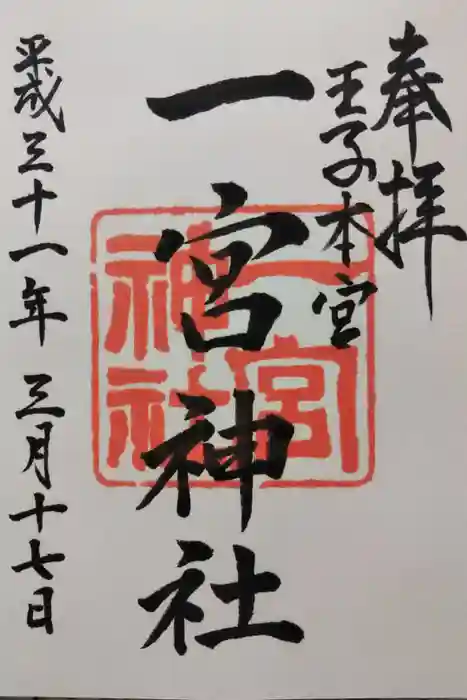 奉拝
王子本宮
一宮神社
一宮神社
平成三十一年三月十七日